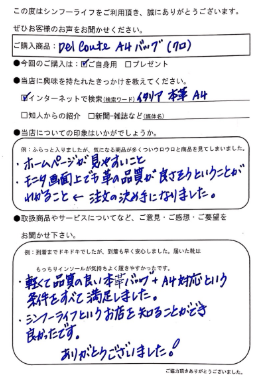 この度はシンフーライフをご利用頂き、誠にありがとうございます。
ぜひお客様のお声をお聞かせください。
ご購入商品： Del Conte A4バッグ (クロ)
●今回のご購入は：☑ご自身用 □プレゼント
●当店に興味を持たれたきっかけを教えてください。
☑インターネットで検索(検索ワード) イタリア 本革 A4
□知人からの紹介 □新聞・雑誌など(媒体名)
●当店についての印象はいかがでしょうか。
例：ふらっと入りましたが、気になる商品が多くついウロウロと商品を見てしまいました。
・ホームページが見やすいこと
・モニタ画面上でも革の品質が良さそうということが
わかること ← 注文の決め手になりました。
●取扱商品やサービスについてなど、ご意見・ご感想・ご要望を
お聞かせ下さい。
例：到着までドキドキでしたが、到着も早く安心しました。届いた靴は
もっちりインソールが気持ちよく履きやすかったです。
・軽くて品質の良い本革バッグ + A4対応という
条件をすべて満足しました。
・シンフーライフというお店を知ることができ
良かったです。
ありがとうございました!
ご協力頂きありがとうございました。